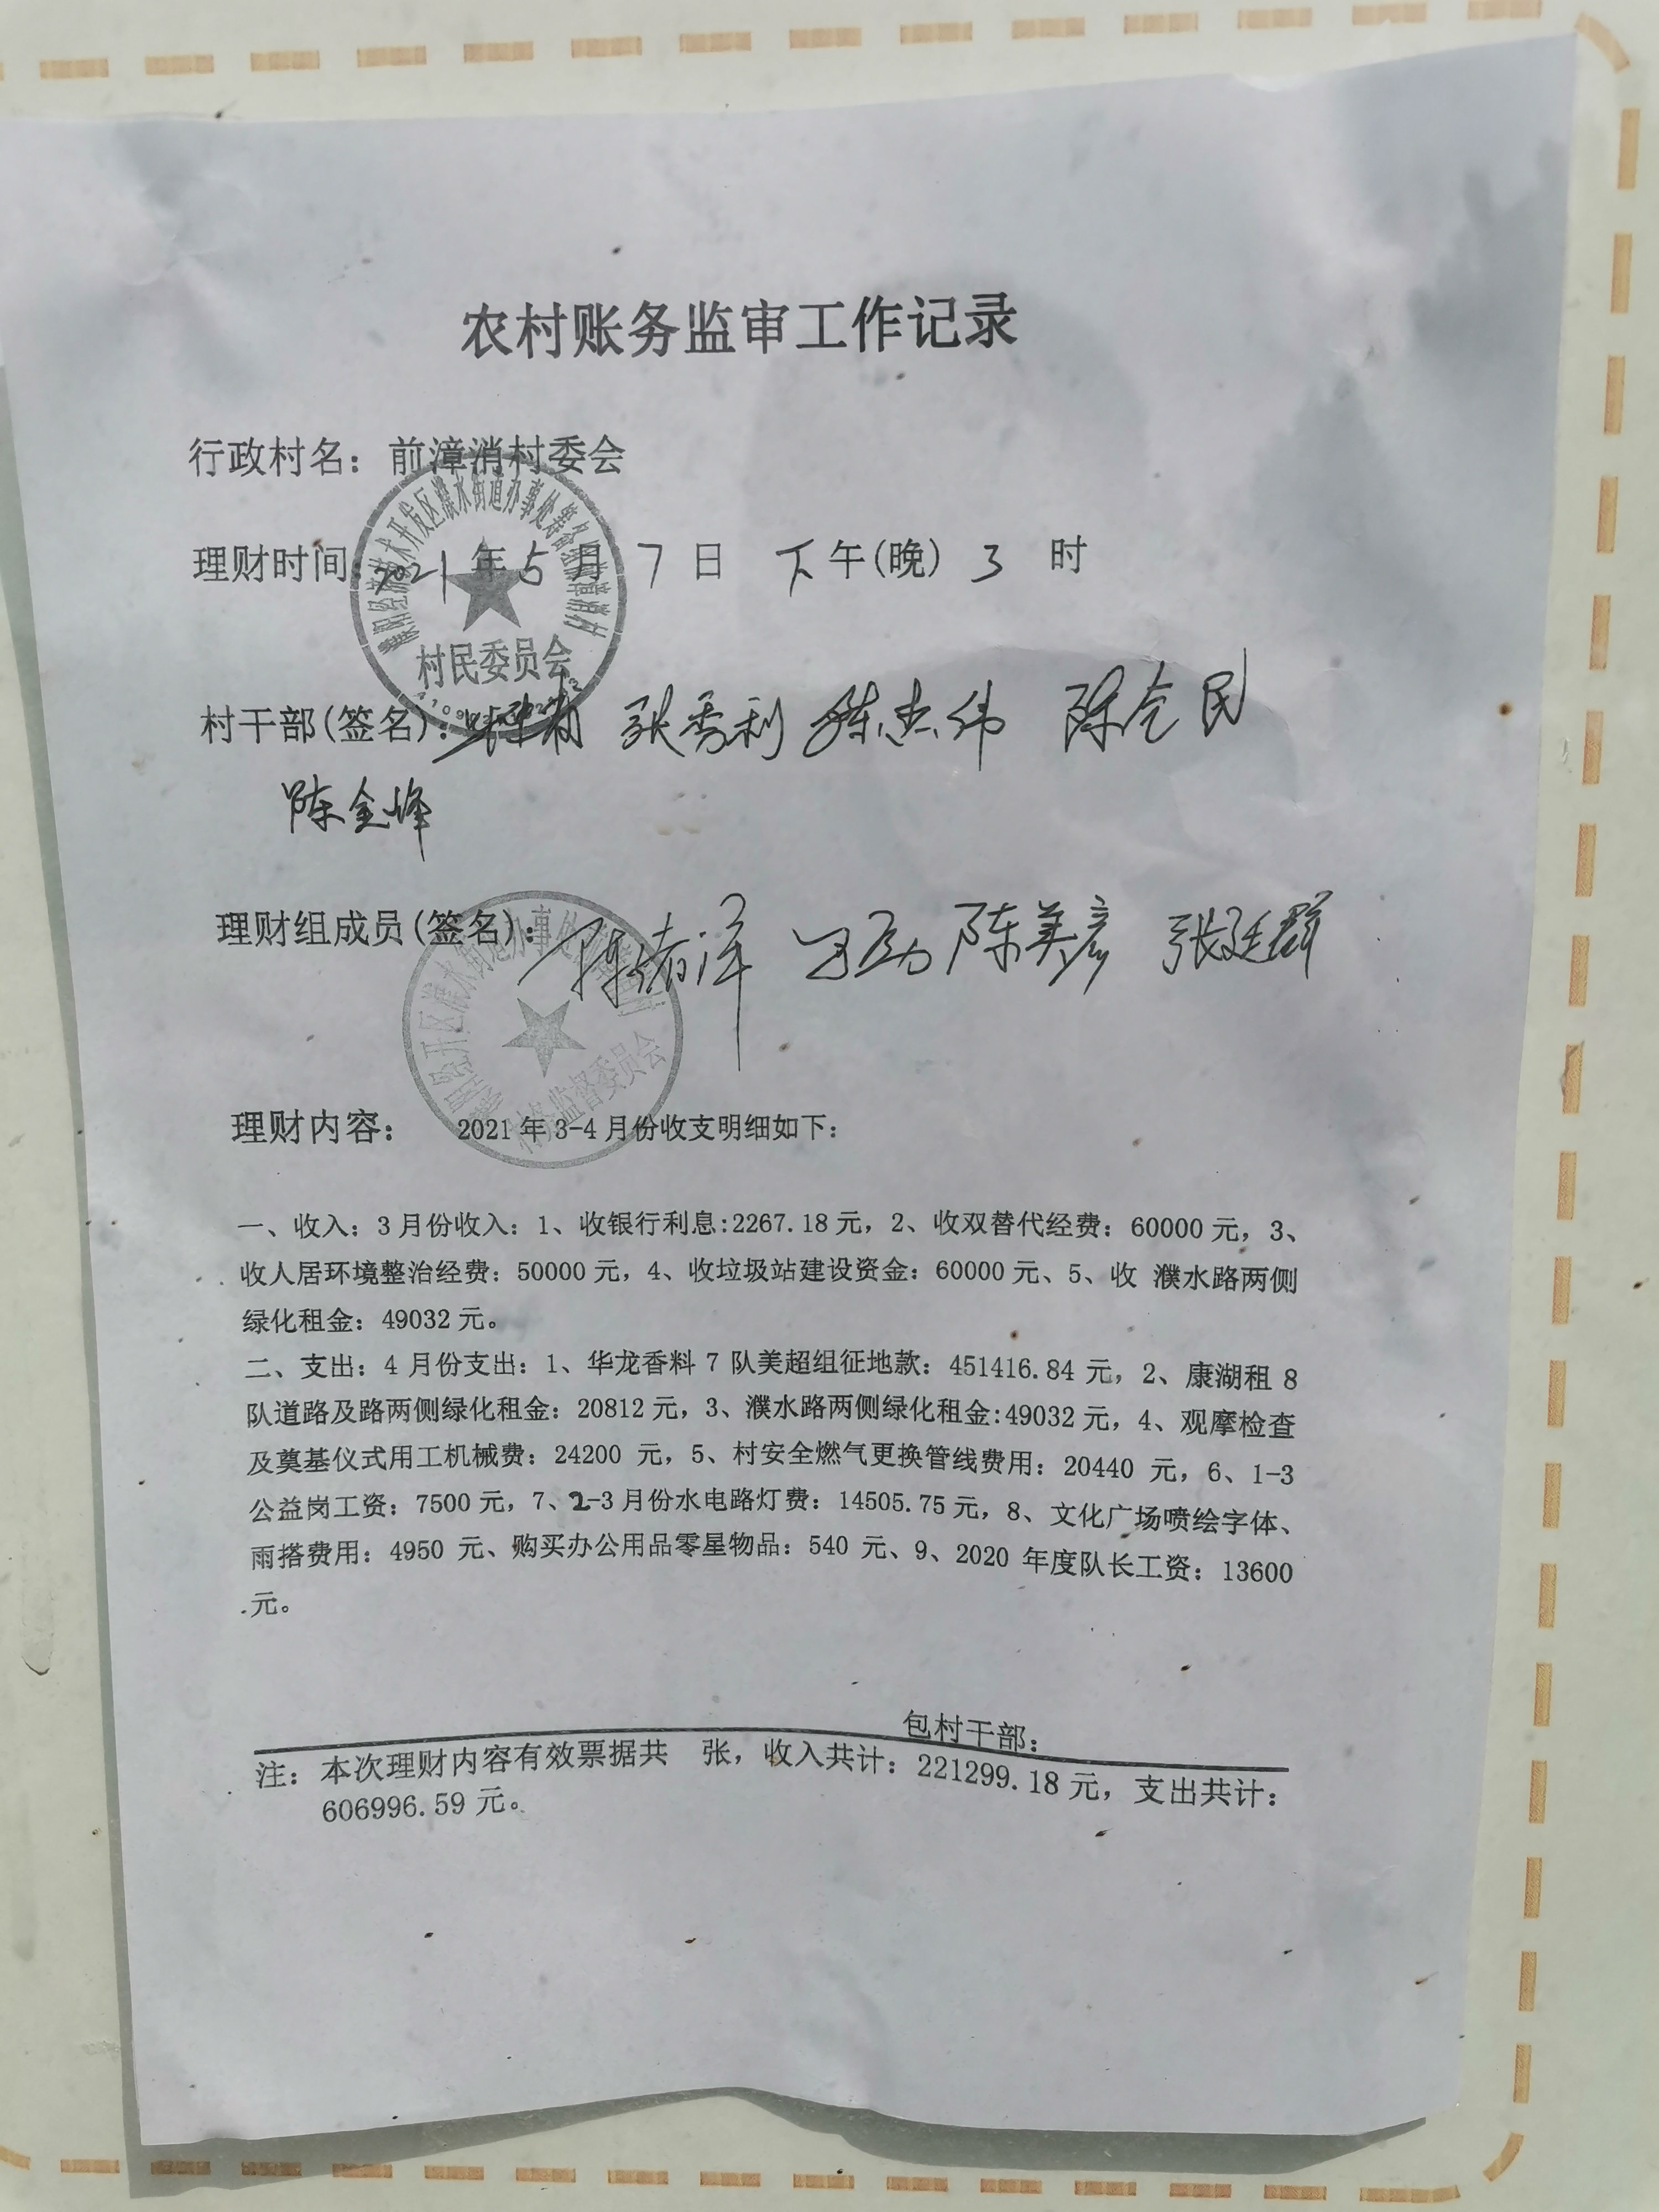 农村账务监审工作记录
行政村名：前漳消村委会
理财时间：2021年5月7日 下午(晚) 3 时
村民委员会
村干部(签名)： 张秀利 陈忠伟 陈合民
陈金峰
理财组成员(签名)： 陈美彦 张廷群
村务监督委员会
理财内容： 2021年3-4月份收支明细如下：
一、收入：3月份收入：1、收银行利息:2267.18元，2、收双替代经费：60000元，3、
收人居环境整治经费：50000元，4、收垃圾站建设资金：60000元、5、收 濮水路两侧
绿化租金：49032元。
二、支出：4月份支出：1、华龙香料7队美超组征地款：451416.84元，2、康湖租8
队道路及路两侧绿化租金：20812元，3、濮水路两侧绿化租金:49032元，4、观摩检查
及奠基仪式用工机械费：24200 元，5、村安全燃气更换管线费用：20440 元，6、1-3
公益岗工资：7500元，7、2-3月份水电路灯费：14505.75元，8、文化广场喷绘字体、
雨搭费用：4950 元、购买办公用品零星物品：540 元、9、2020 年度队长工资：13600
元。
包村干部：
注：本次理财内容有效票据共 张，收入共计：221299.18元，支出共计：
606996.59元。